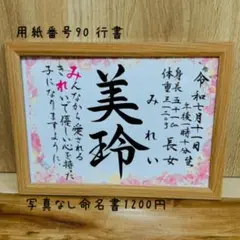 用紙番号90 行書
令和七月十一日
午後一時十分誕生
身長 五十一㎝
体重
長女
みれい
美玲
みんなから愛される
きれいで優しい心を持った
子になりますように。
写真なし命名書1200円